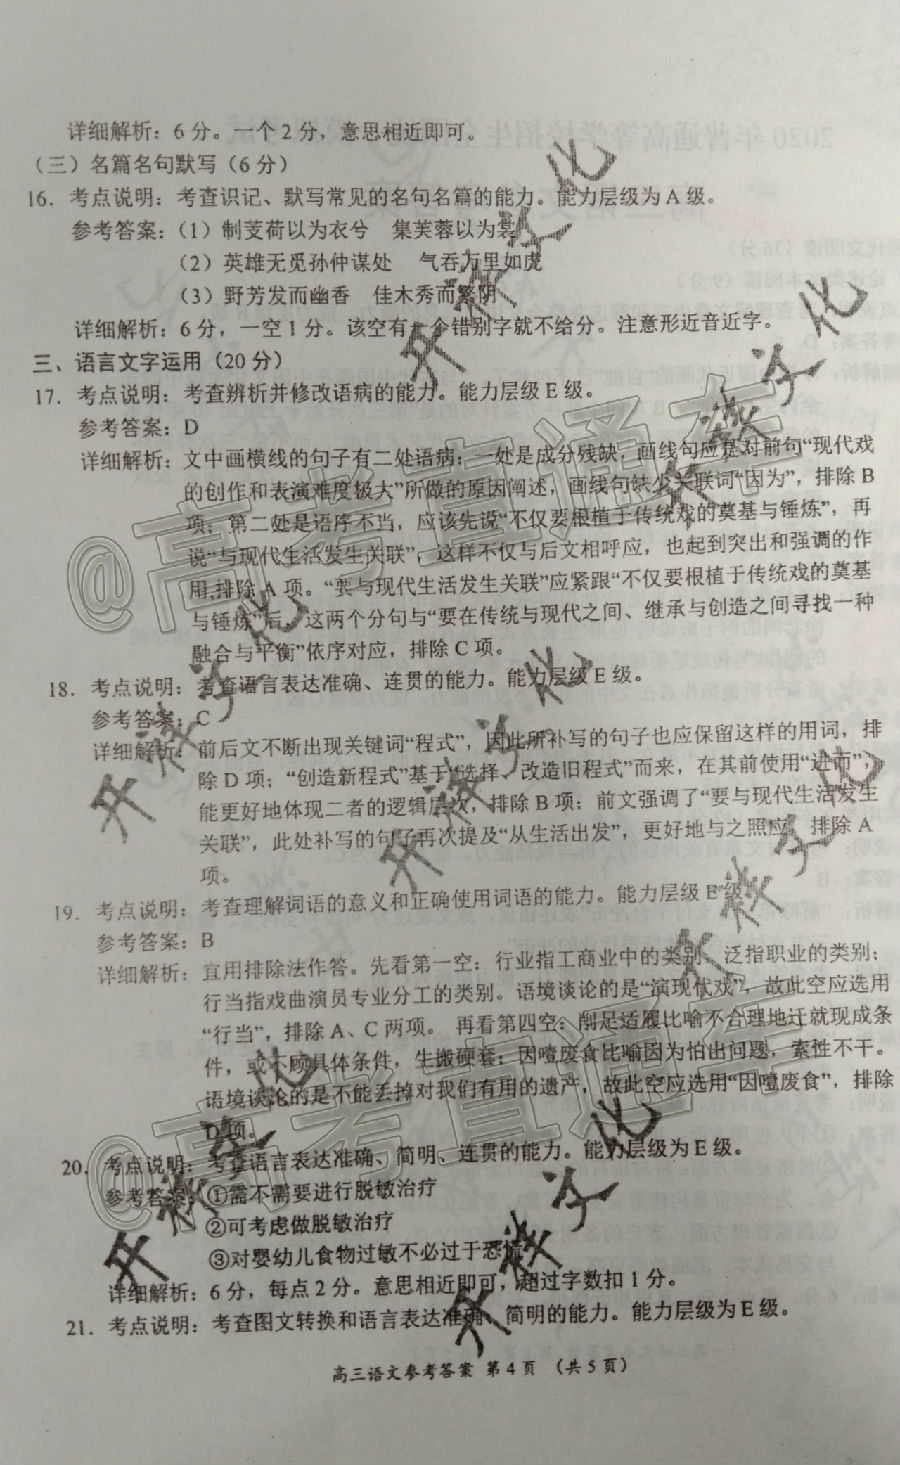 详细解析：6分。一个2分，意思相近即可。
（三）名篇名句默写（6分）
16．考点说明：考查识记、默写常见的名句名篇的能力。能力层级为A级。
参考答案：（1）制芰荷以为衣兮 集芙蓉以为裳
（2）英雄无觅孙仲谋处 气吞万里如虎
（3）野芳发而幽香 佳木秀而繁阴
详细解析：6分，一空1分。该空有一个错别字就不给分。注意形近音近字。
三、语言文字运用（20分）
17．考点说明：考查辨析并修改语病的能力。能力层级E级。
参考答案：D
详细解析：文中画横线的句子有二处语病：一处是成分残缺，画线句应是对前句“现代戏
的创作和表演难度极大”所做的原因阐述，画线句缺少关联词“因为”，排除B
项；第二处是语序不当，应该先说“不仅要根植于传统戏的奠基与锤炼”，再
说“与现代生活发生关联”，这样不仅与后文相呼应，也起到突出和强调的作
用,排除A项。“要与现代生活发生关联”应紧跟“不仅要根植于传统戏的奠基
与锤炼”后，这两个分句与“要在传统与现代之间、继承与创造之间寻找一种
融合与平衡”依序对应，排除C项。
18．考点说明：考查语言表达准确、连贯的能力。能力层级E级。
参考答案：C
详细解析：前后文不断出现关键词“程式”，因此所补写的句子也应保留这样的用词，排
除D项；“创造新程式”基于“选择、改造旧程式”而来，在其前使用“进而”，
能更好地体现二者的逻辑层次，排除B项；前文强调了“要与现代生活发生
关联”，此处补写的句子再次提及“从生活出发”，更好地与之照应，排除A
项。
19．考点说明：考查理解词语的意义和正确使用词语的能力。能力层级E级。
参考答案：B
详细解析：宜用排除法作答。先看第一空：行业指工商业中的类别，泛指职业的类别；
行当指戏曲演员专业分工的类别。语境谈论的是“演现代戏”，故此空应选用
“行当”，排除A、C两项。 再看第四空：削足适履比喻不合理地迁就现成条
件，或不顾具体条件，生搬硬套；因噎废食比喻因为怕出问题，索性不干。
语境谈论的是不能丢掉对我们有用的遗产，故此空应选用“因噎废食”，排除
D项。
20．考点说明：考查语言表达准确、简明、连贯的能力。能力层级为E级。
参考答案：①需不需要进行脱敏治疗
②可考虑做脱敏治疗
③对婴幼儿食物过敏不必过于恐慌
详细解析：6分，每点2分。意思相近即可，超过字数扣1分。
21．考点说明：考查图文转换和语言表达准确、简明的能力。能力层级为E级。
高三语文参考答案 第4页 （共5页）
@高考直通车
@高考直通车